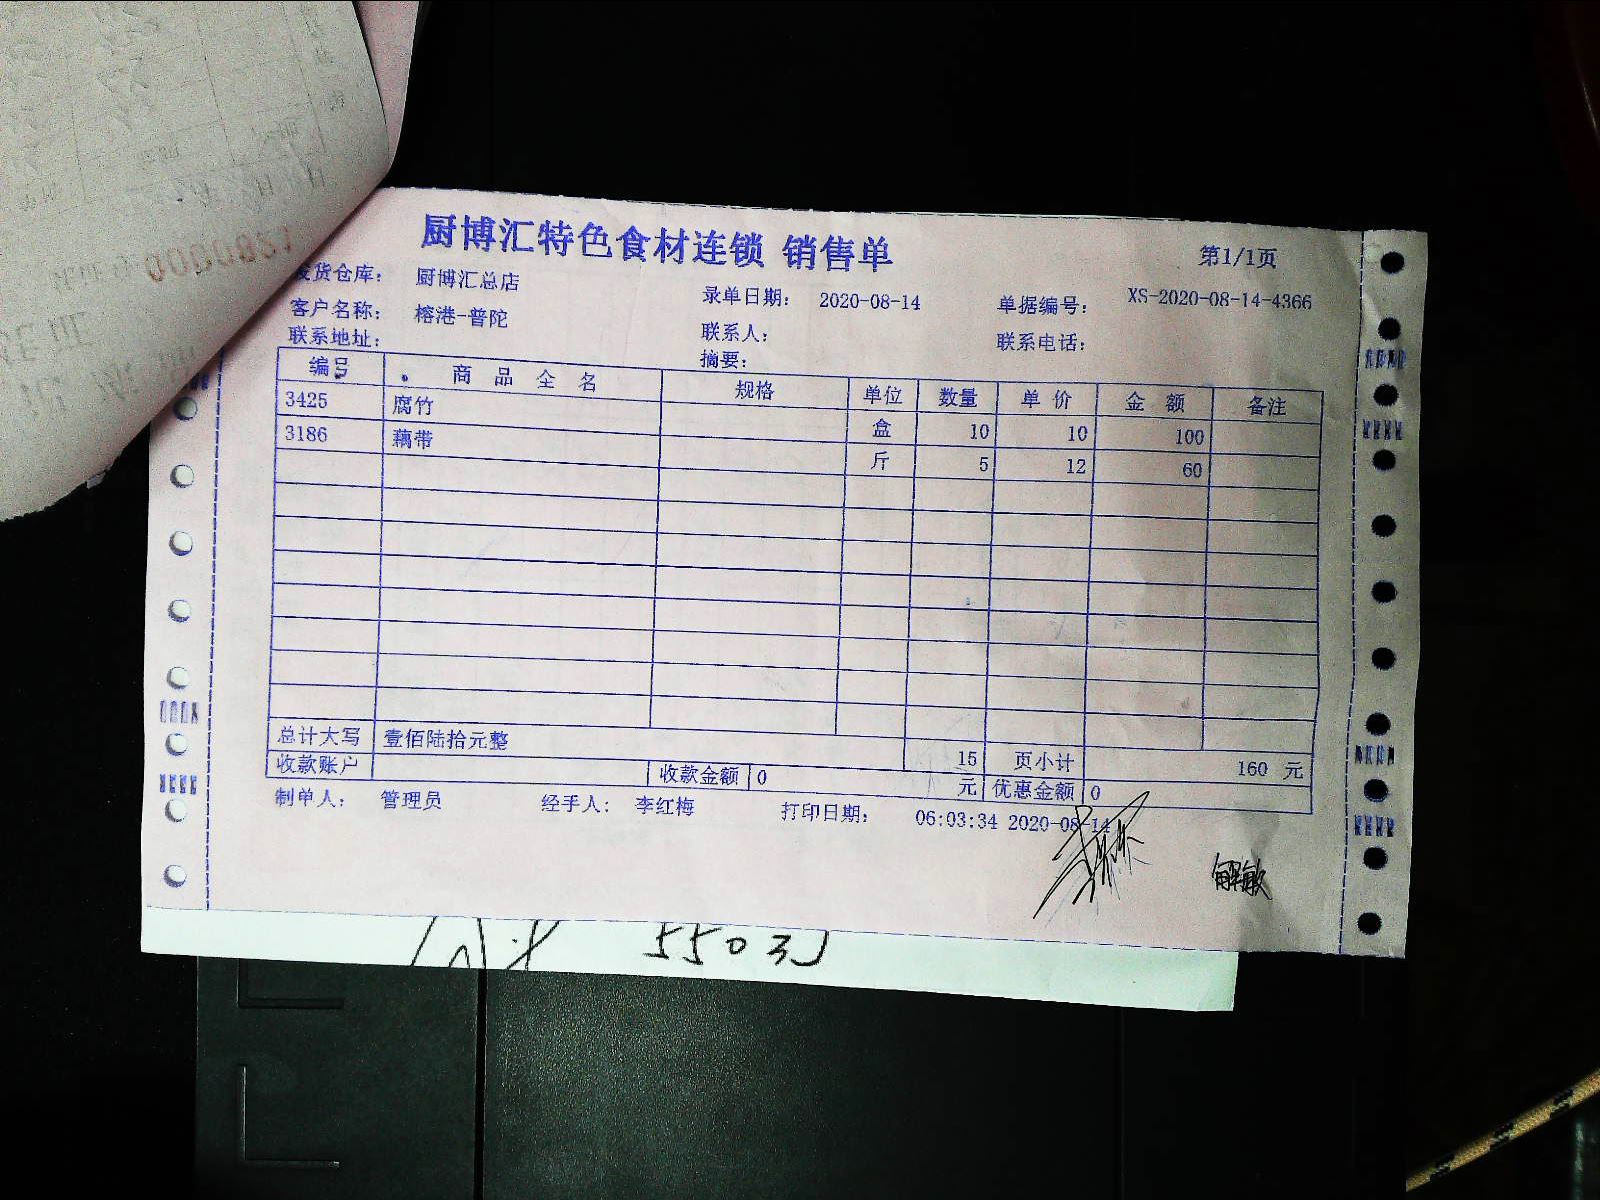 厨博汇特色食材连锁 销售单
第1/1页
发货仓库： 厨博汇总店 录单日期： 2020-08-14 单据编号： XS-2020-08-14-4366
客户名称： 榕港-普陀 联系人： 联系电话：
联系地址： 摘要：
编号 商品全名 规格 单位 数量 单价 金额 备注
3425 腐竹 盒 10 10 100
3186 藕带 斤 5 12 60
总计大写 壹佰陆拾元整 15 页小计 160 元
收款账户 收款金额 0 元 优惠金额 0
制单人： 管理员 经手人： 李红梅 打印日期： 06:03:34 2020-08-14
解敏
5503
0000821